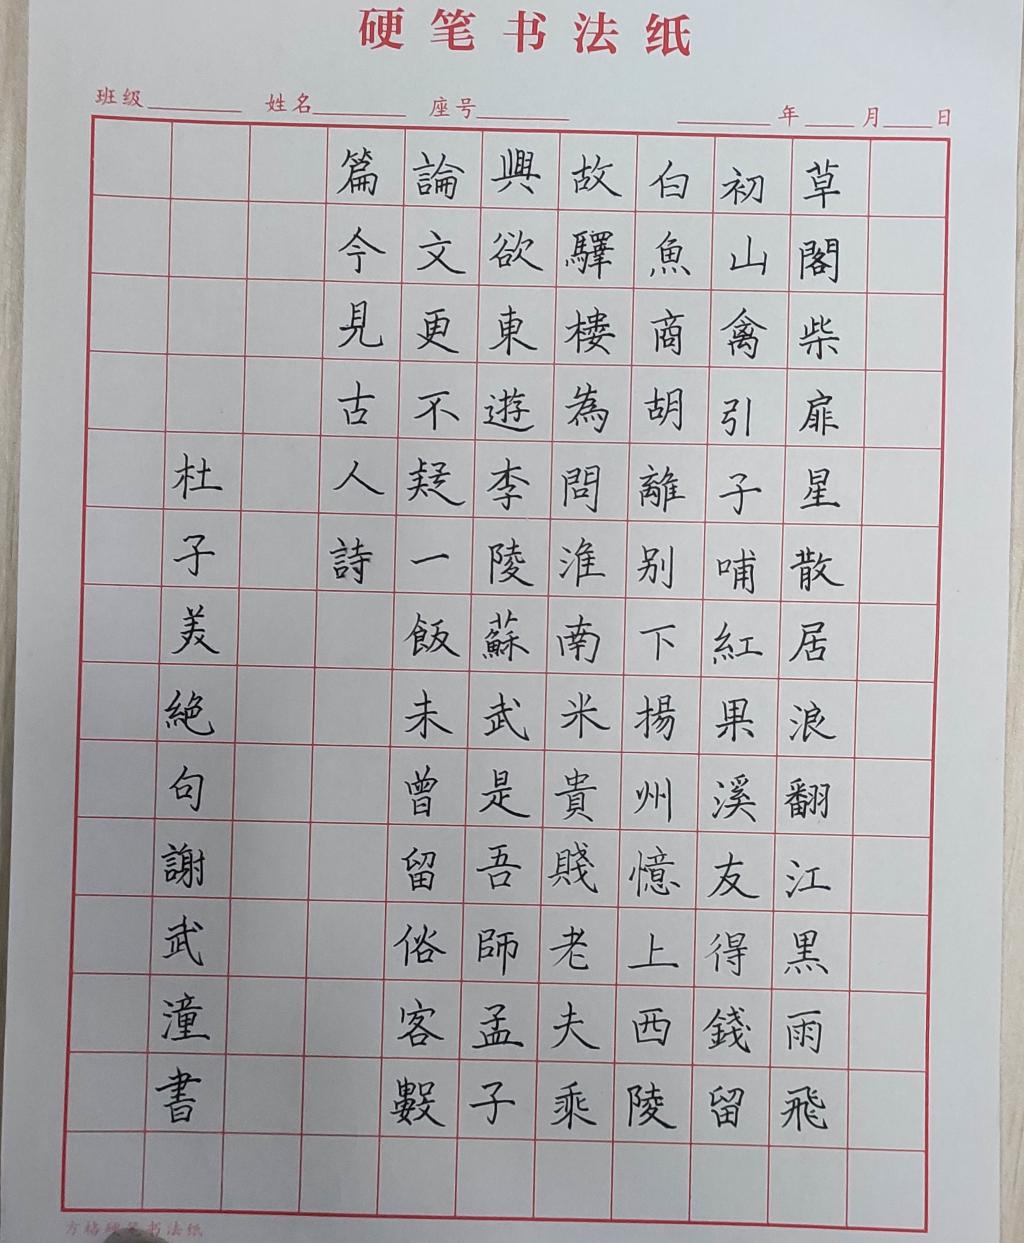 硬笔书法纸
班级 姓名 座号 年 月 日
草閣柴扉星散居浪翻江黑雨飛
初山禽引子哺紅果溪友得錢留
白魚商胡離别下揚州憶上西陵
故驛樓為問淮南米貴賤老夫乘
興欲東遊李陵蘇武是吾師孟子
論文更不疑一飯未曾留俗客數
篇今見古人詩
杜子美絶句謝武潼書
方格硬笔书法纸